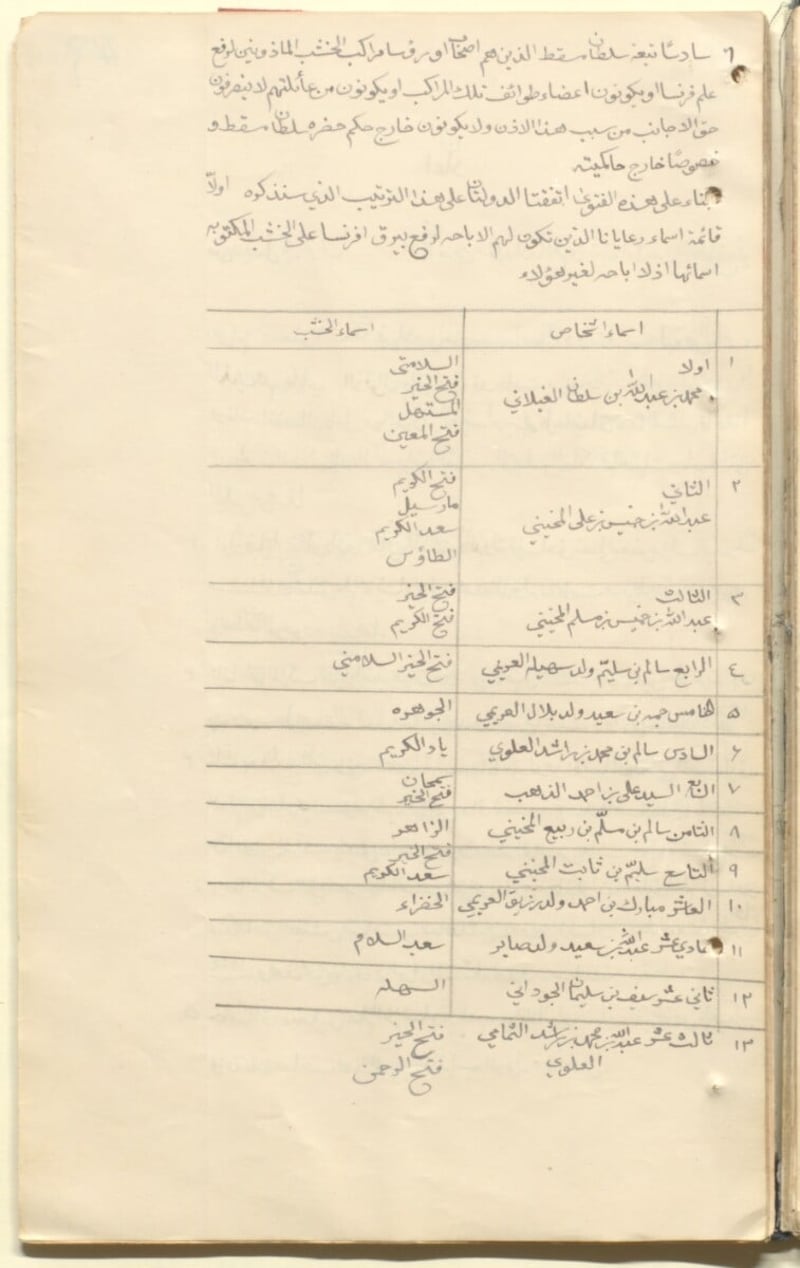 ٦ سادسًا تبعة سلطان مسقط الذين هم اصحاب او رؤسا مراكب الخشب الماذونين لرفع
علم فرنسا او يكونون اعضاء طوائف تلك المراكب او يكونون من عائلتهم لا يتصرفون
حق الاجانب من سبب هذا الاذن ولا يكونون خارج حكم حضره سلطان مسقط و
خصوصًا خارج حاكميته
بناء على هذه الفتوى اتفقتا الدولتان على هذا الترتيب الذي سنذكره اولاً
قائمة اسماء رعايانا الذين تكون لهم الاباحه لرفع بيرق افرنسا على الخشب المكتوبه
اسمائها اذ لا اباحه لغير هؤلاء
اسماء اشخاص اسماء الخشب
١ اولا محمد بن عبدالله بن سلطان الغيلاني السلامتى
فتح الخير
المستهل
فتح المعين
٢ الثاني عبدالله بن خميس بن على المخيني فتح الكريم
مارسيل
سعد الكريم
الطاؤس
٣ الثالث عبدالله بن خميس بن مسلم المخيني فتح الخير
فتح الكريم
٤ الرابع سالم بن سليّم ولد سهيله العريمي فتح الخير السلامتي
٥ الخامس جمعه بن سعيد ولد بلال العريمي الجوهره
٦ السادس سالم بن محمد بن راشد العلوي ياد الكريم
٧ السابع السيد على بن احمد الذهب سمحان
فتح الخير
٨ الثامن سالم بن مسلّم بن ربيع المخيني الزاهر
٩ التاسع سليّم بن ثابت المخيني فتح الخير
سعد الكريم
١٠ العاشر مبارك بن احمد ولد رزيق العريمي الخضراء
١١ حادي عشر عبدالله بن سعيد ولد صابر سعد السلام
١٢ ثاني عشر سيف بن سليمان الجوداني السهله
١٣ ثالث عشر عبدالله بن محمد بن راشد فتح الخير
العلوي فتح الرحمن